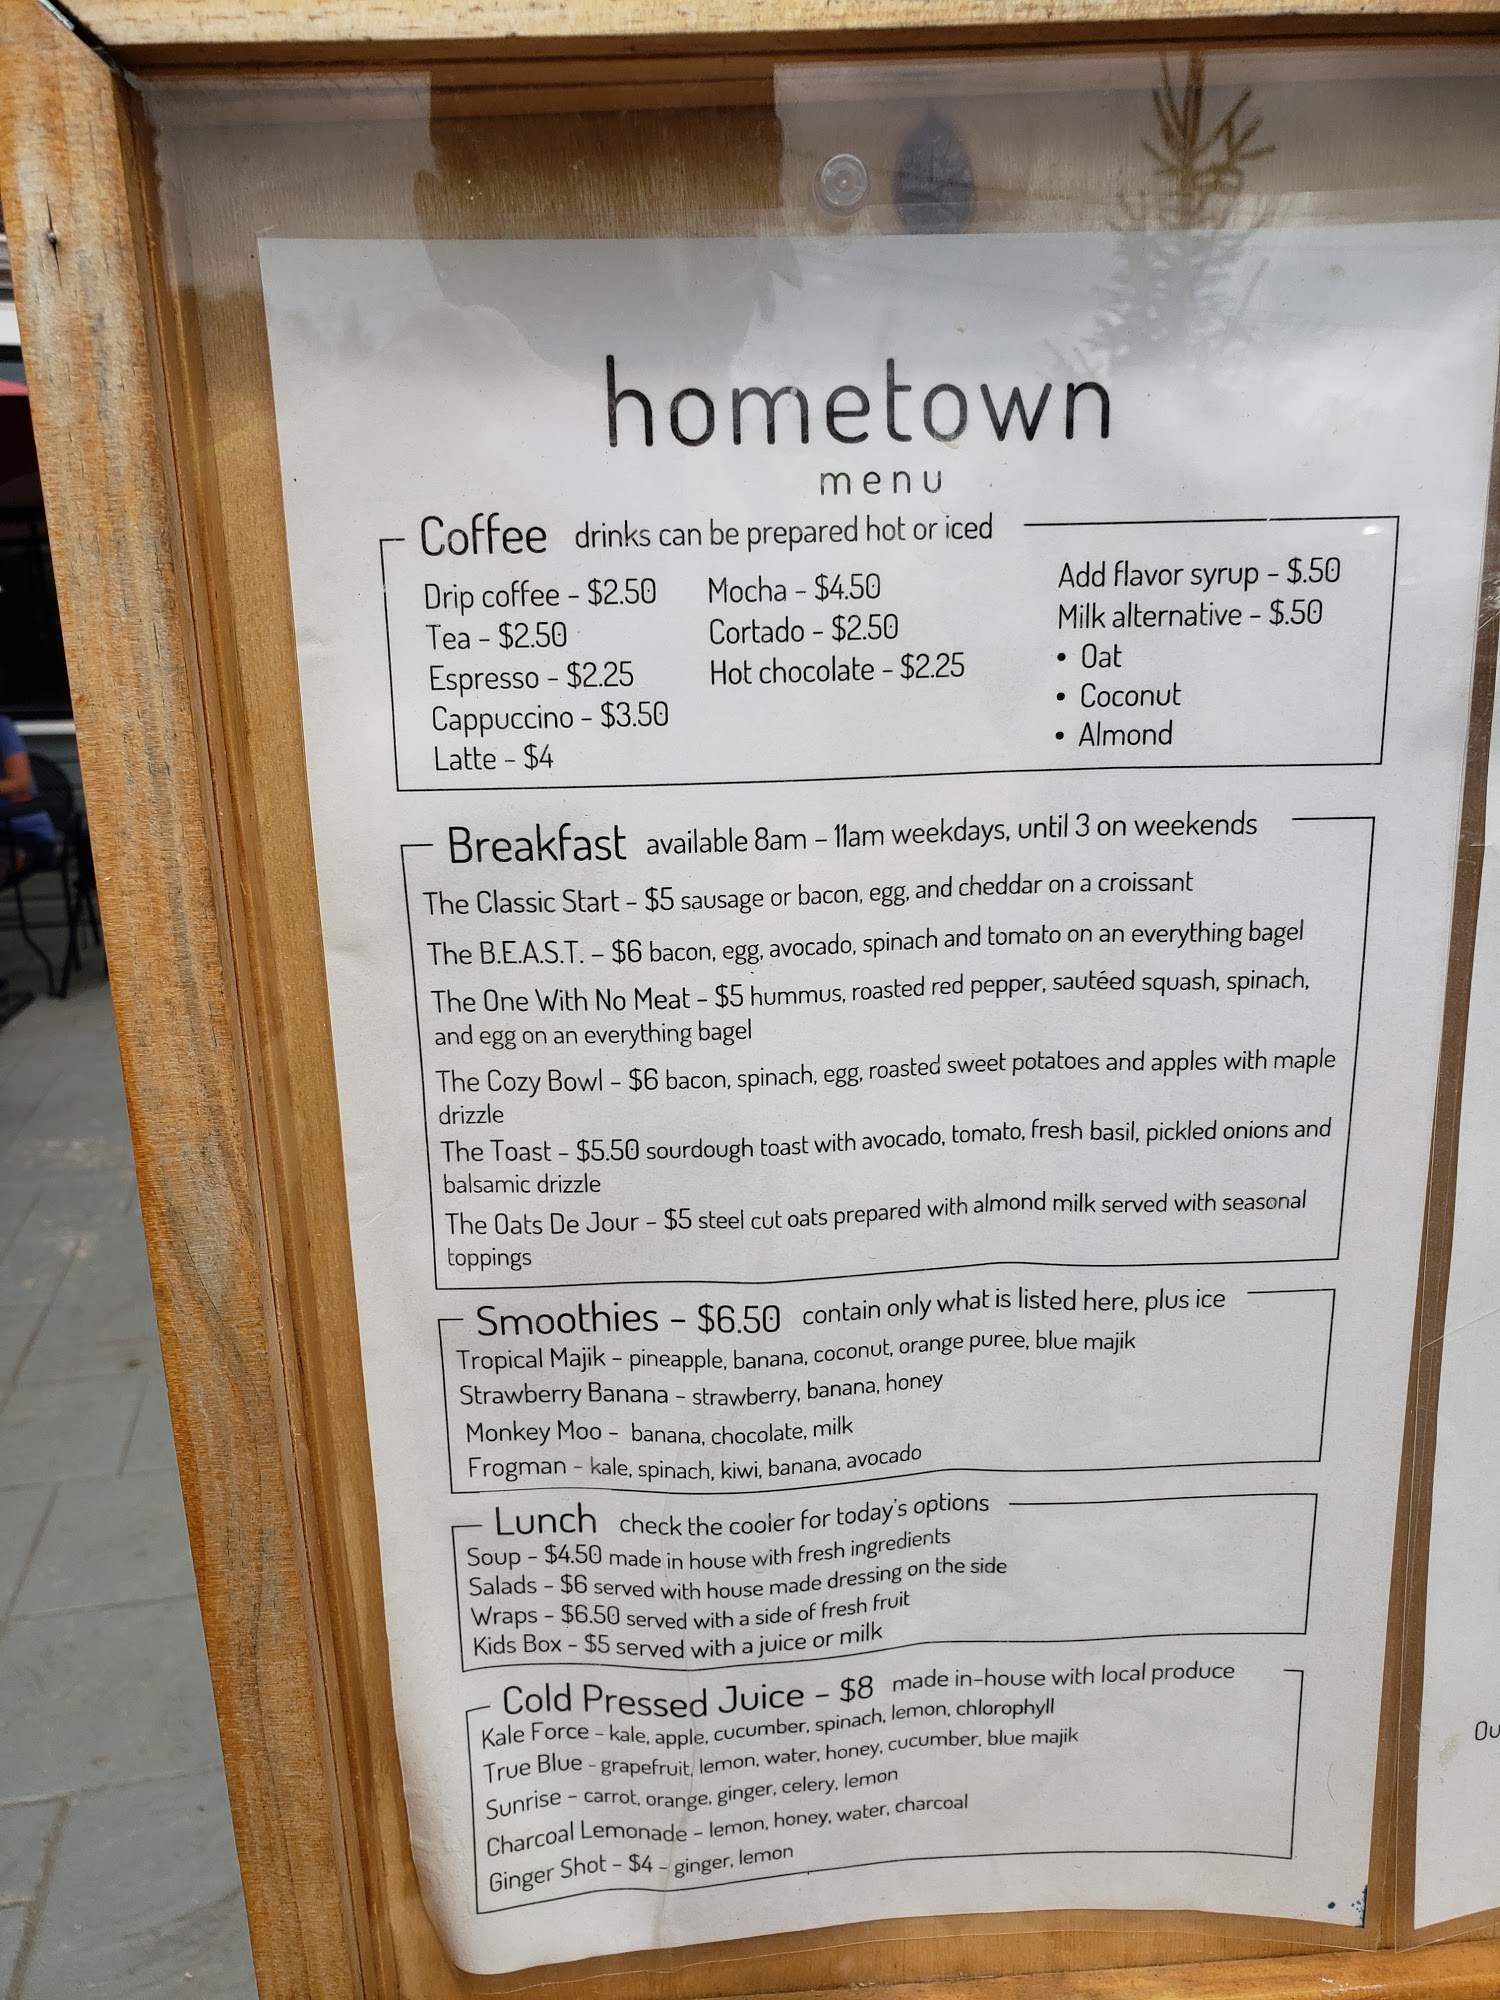 hometown
menu
Coffee drinks can be prepared hot or iced
Drip coffee - $2.50
Tea - $2.50
Espresso - $2.25
Cappuccino - $3.50
Latte - $4
Mocha - $4.50
Cortado - $2.50
Hot chocolate - $2.25
Add flavor syrup - $.50
Milk alternative - $.50
• Oat
• Coconut
• Almond
Breakfast available 8am - 11am weekdays, until 3 on weekends
The Classic Start - $5 sausage or bacon, egg, and cheddar on a croissant
The B.E.A.S.T. - $6 bacon, egg, avocado, spinach and tomato on an everything bagel
The One With No Meat - $5 hummus, roasted red pepper, sautéed squash, spinach,
and egg on an everything bagel
The Cozy Bowl - $6 bacon, spinach, egg, roasted sweet potatoes and apples with maple
drizzle
The Toast - $5.50 sourdough toast with avocado, tomato, fresh basil, pickled onions and
balsamic drizzle
The Oats De Jour - $5 steel cut oats prepared with almond milk served with seasonal
toppings
Smoothies - $6.50 contain only what is listed here, plus ice
Tropical Majik - pineapple, banana, coconut, orange puree, blue majik
Strawberry Banana - strawberry, banana, honey
Monkey Moo - banana, chocolate, milk
Frogman - kale, spinach, kiwi, banana, avocado
Lunch check the cooler for today's options
Soup - $4.50 made in house with fresh ingredients
Salads - $6 served with house made dressing on the side
Wraps - $6.50 served with a side of fresh fruit
Kids Box - $5 served with a juice or milk
Cold Pressed Juice - $8 made in-house with local produce
Kale Force - kale, apple, cucumber, spinach, lemon, chlorophyll
True Blue - grapefruit, lemon, water, honey, cucumber, blue majik
Sunrise - carrot, orange, ginger, celery, lemon
Charcoal Lemonade - lemon, honey, water, charcoal
Ginger Shot - $4 - ginger, lemon